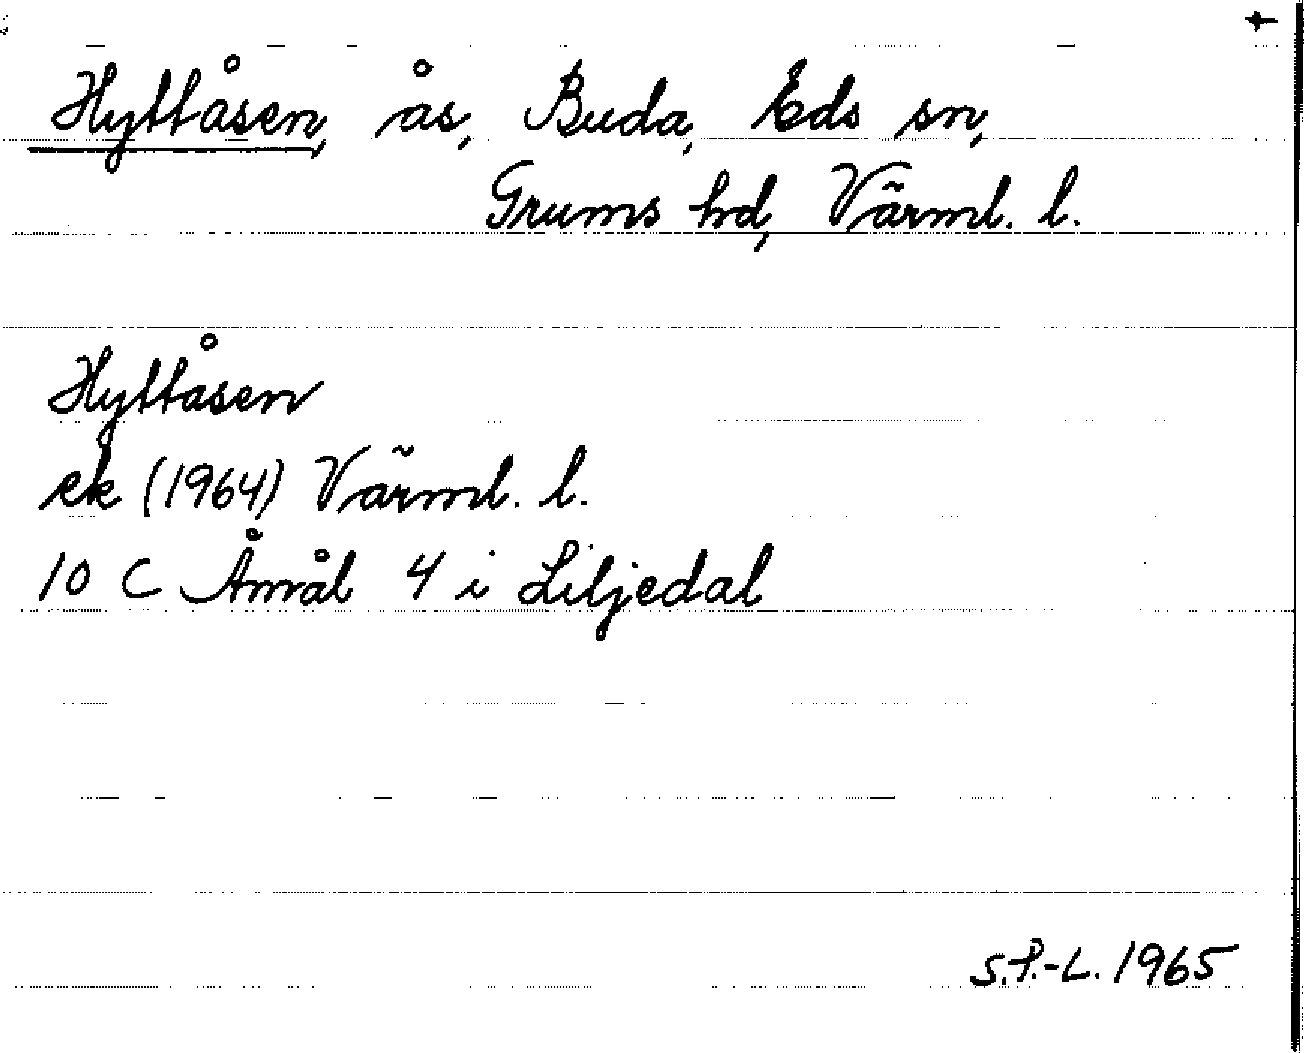 Hyttåsen, ås, Buda, Eds sn,
Grums hd, Värml. l.
Hyttåsen
ek (1964) Värml. l.
10 C Åmål 4 i Liljedal
S.P.-L. 1965